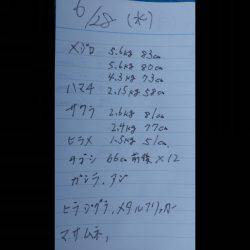 6/28 (水)
メジロ 5.6kg 83cm
5.6kg 80cm
4.3kg 73cm
ハマチ 2.15kg 58cm
サワラ 2.6kg 81cm
2.4kg 77cm
ヒラメ 1.5kg 51cm
サゴシ 66cm前後×12
ガシラ、アジ
ヒラジグラ、メタルフリッカー
マサムネ、